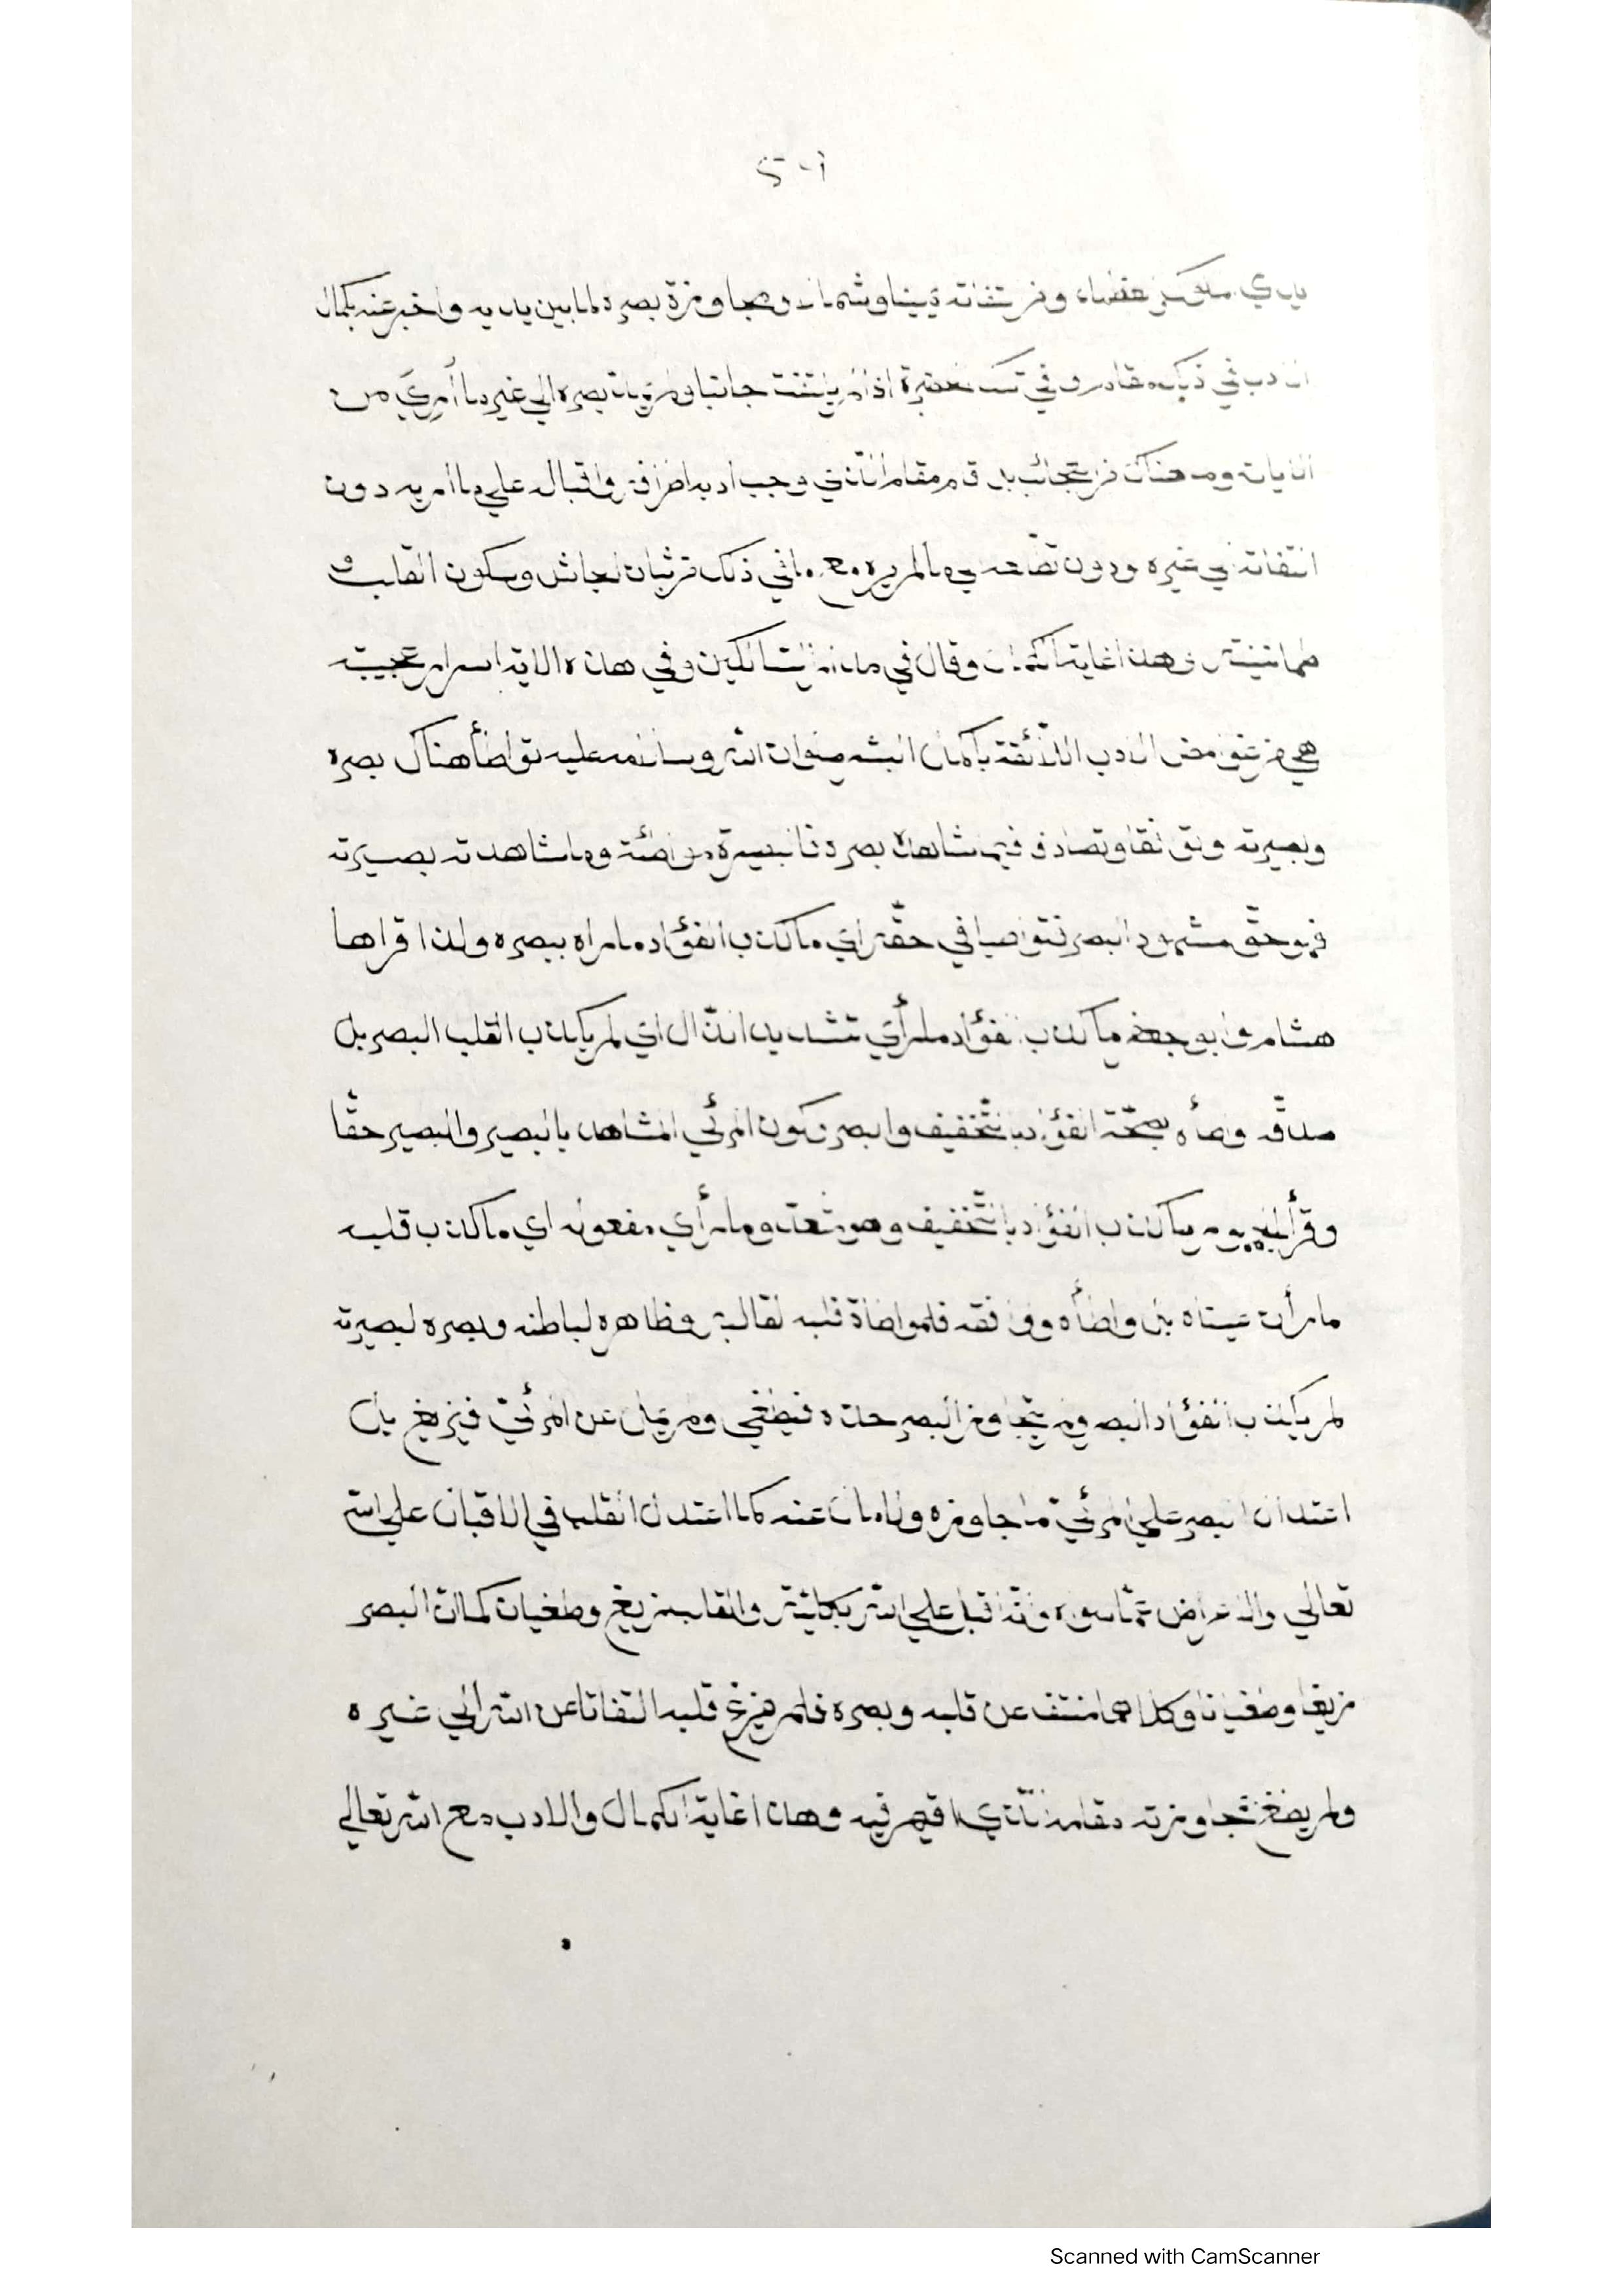 يدي الملوك والعظماء ومن التفاته يمينا وشمالا ومجاوزة بصره لما بين يديه واخبر عنه بكمال
الادب في ذلك المقام وفي تلك الحضرة اذ لم يلتفت جانبا ولم يمل بصره الي غير ما أري من
الايات وما هناك من العجائب بل قام مقام الذي وجب ادبه اطراقه واقباله علي ما امر به دون
التفاته الي غيره ودون تطلعه الي ما لم يره مع ما في ذلك من ثبات الجاش وسكون القلب و
طمانينته وهذا غاية الكمال وقال في مدارج السالكين وفي هذه الاية اسرار عجيبة
هي من غوامض الادب اللائقة باكمل البشر صلوات الله وسلامه عليه تواطأ هناك بصره
وبصيرته وتوافقا وتصادقا فيما شاهده بصره فالبصيرة مواطئة وما شاهدته بصيرته
فهو حق مشهود البصر فتواطيا في حقه اي ما كذب الفؤاد ما راه ببصره ولذا قراها
هشام وابو جعفر ما كذب الفؤاد ما رأي تشديد الذال اي لم يكذب القلب البصر بل
صدقه وواطأه بصحة الفؤاد بالتخفيف والبصر بكون المرئي المشاهد بالبصر والبصير حقا
وقرأ الجمهور ما كذب الفؤاد بالتخفيف وهو متعد وما رأي مفعوله اي ما كذب قلبه
ما رأت عيناه بل واطأه ووافقه فلمواطأة قلبه لقالبه وظاهره لباطنه وبصره لبصيرته
لم يكذب الفؤاد البصر ولم يتجاوز البصر حده فيطغي ولم يمل عن المرئي فيزيغ بل
اعتدال البصر علي المرئي ما جاوزه ولا مال عنه كما اعتدل القلب في الاقبال علي الله
تعالي والاعراض عما سواه وانه اقبل علي الله بكليته وللقلب زيغ وطغيان كما ان البصر
زيغا وطغيانا وكلاهما منتف عن قلبه وبصره فلم يزغ قلبه التفاتا عن الله الي غيره
ولم يطغ بمجاوزته مقامه الذي اقيم فيه وهذا غاية الكمال والادب مع الله تعالي
Scanned with CamScanner